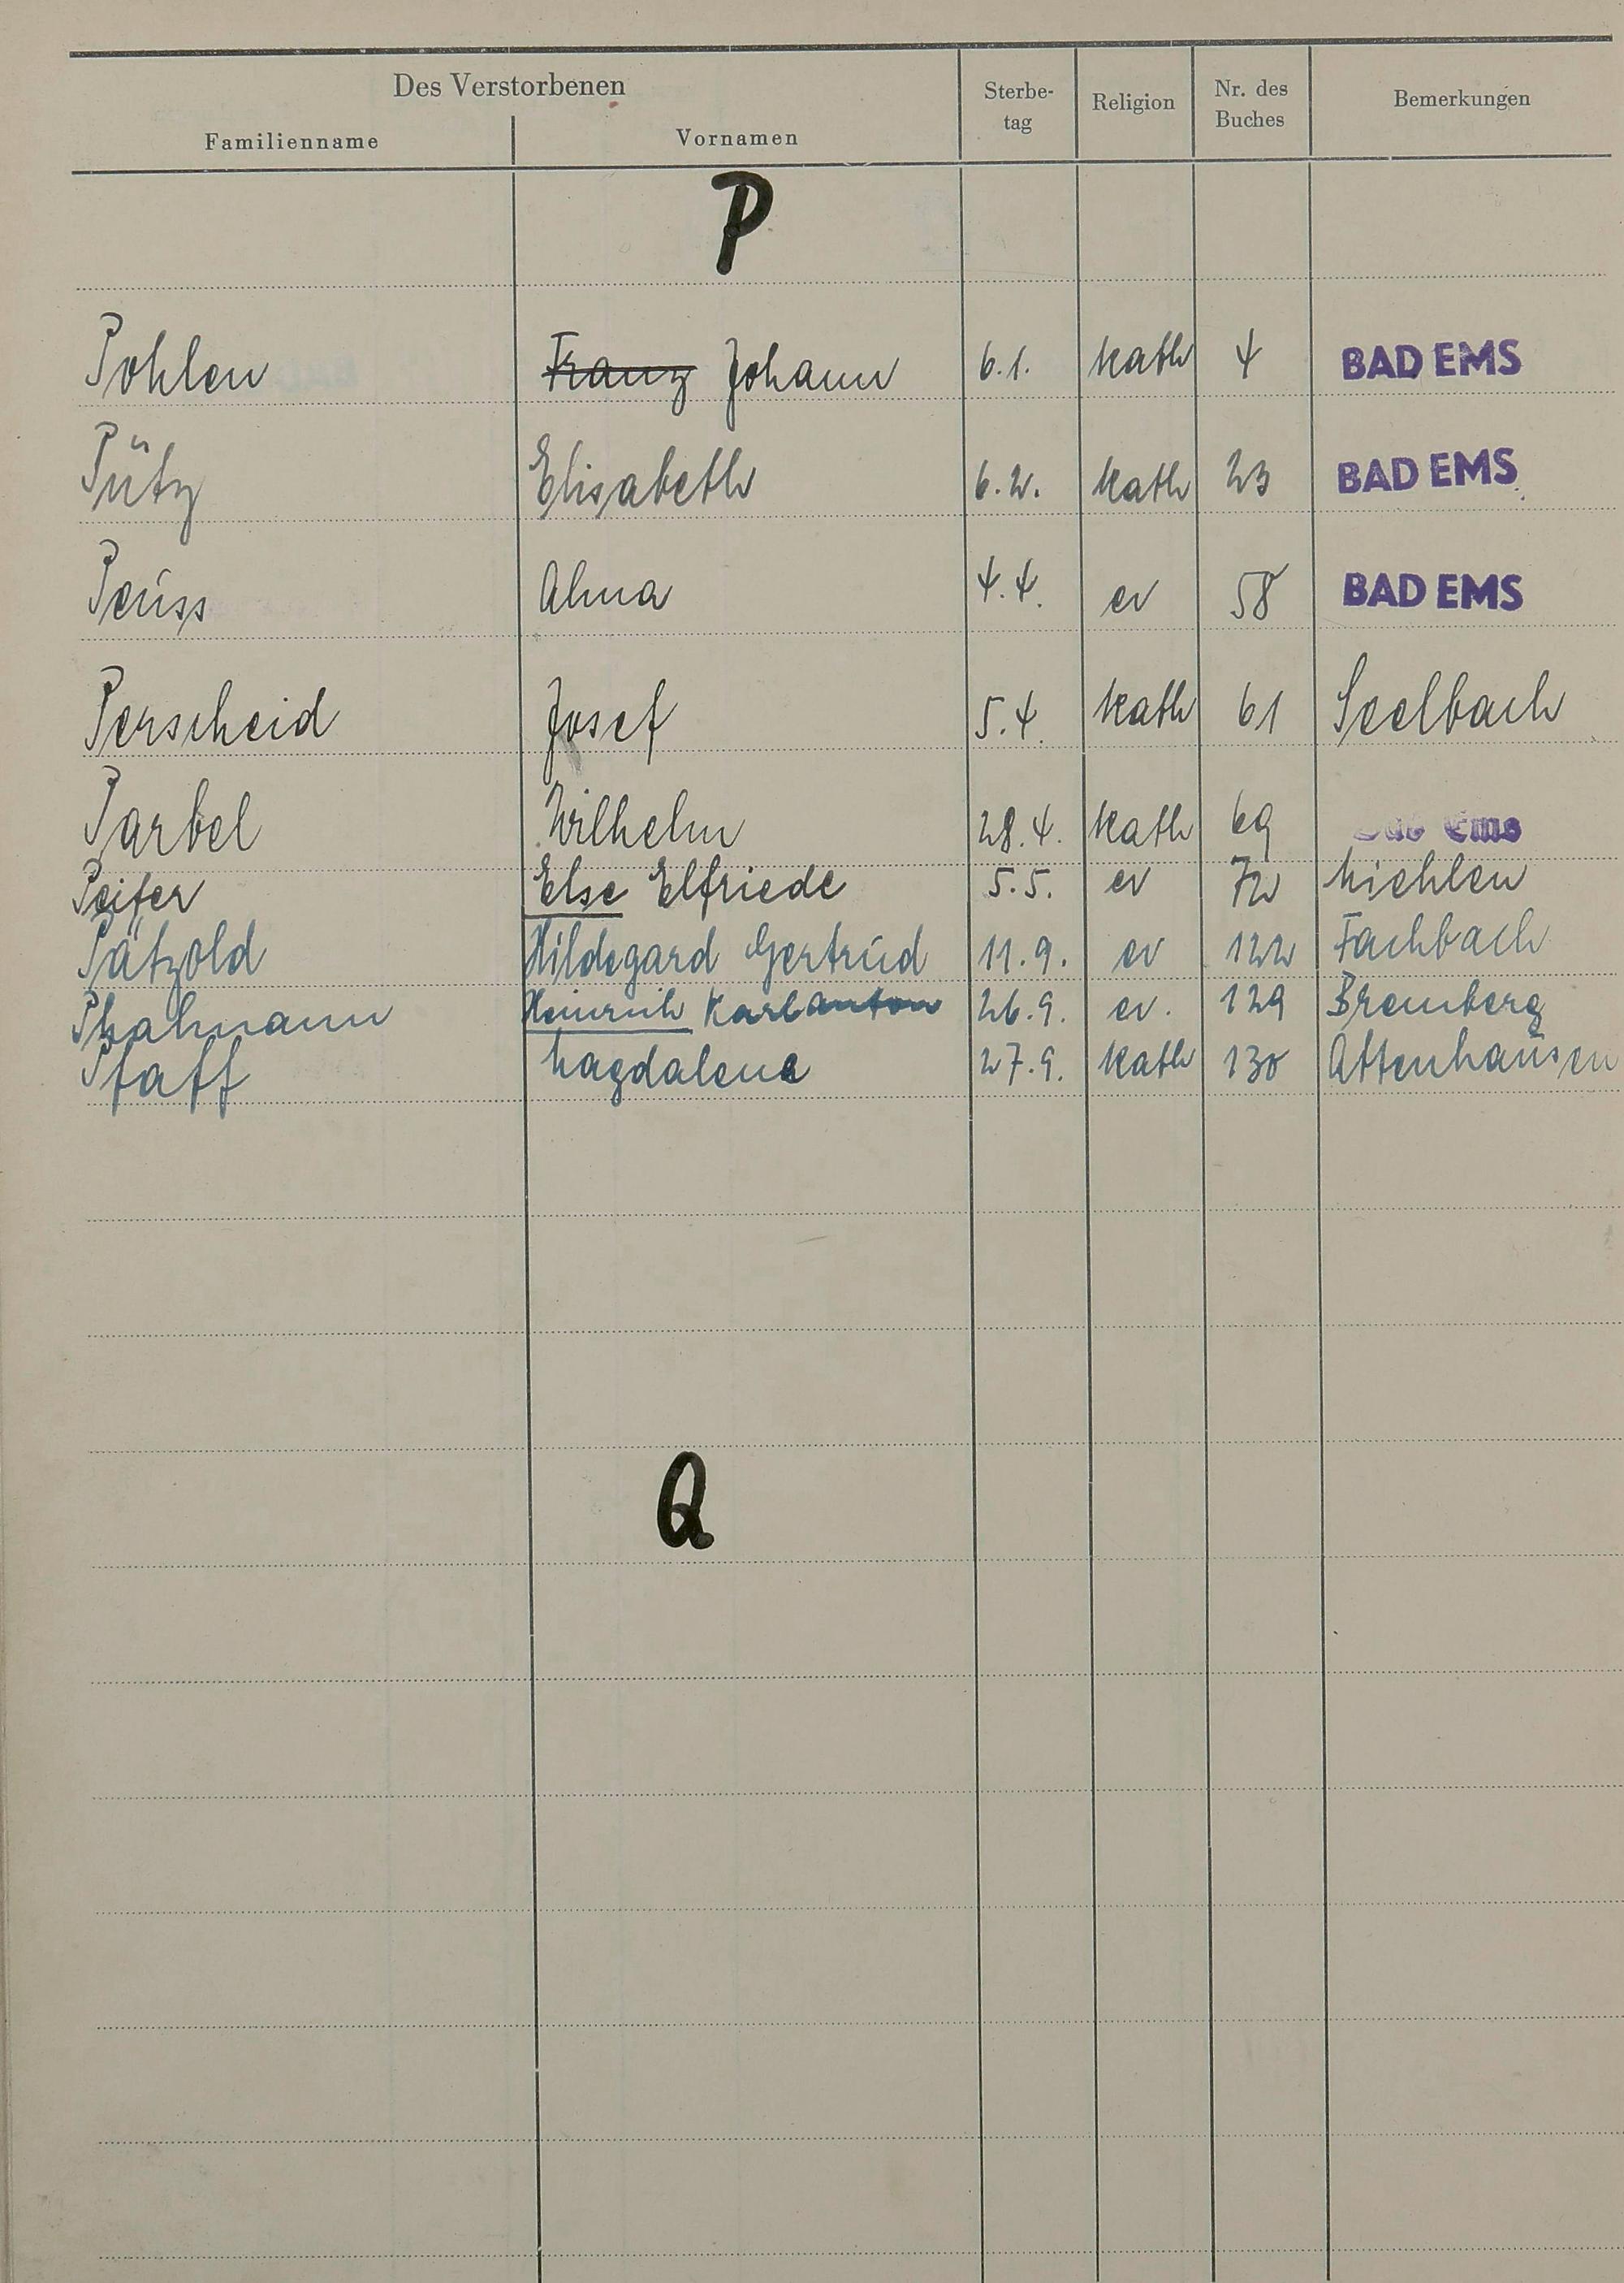 Des Verstorbenen
Familienname Vornamen Sterbe-tag Religion Nr. des Buches Bemerkungen
P
Pohlen Franz Johann 6.1. kath 4 BAD EMS
Pütz Elisabeth 6.2. kath 23 BAD EMS
Peuss Alma 4.4. ev 58 BAD EMS
Perscheid Josef 5.4. kath 61 Seelbach
Parbel Wilhelm 28.4. kath 69 Bad Ems
Peifer Else Elfriede 5.5. ev 72 Miehlen
Pätzold Hildegard Gertrud 11.9. ev 122 Fachbach
Heinrich Karl anton 26.9. ev. 129 Bremberg
Pfaff Magdalena 27.9. kath 130 Attenhausen
Q